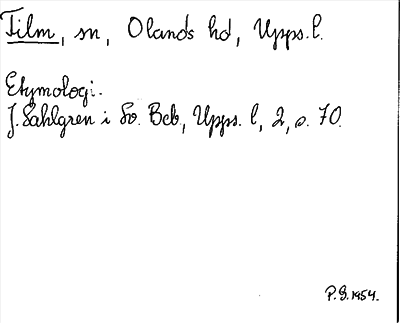 Film, sn, Olands hd, Upps. l.
Etymologi.
J. Sahlgren i Sv. Beb., Upps. l, 2, s. 70.
P.G. 1954.